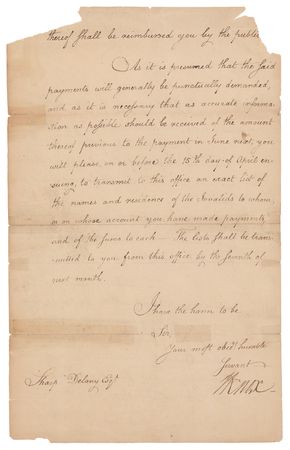 thereof shall be reimbursed you by the public
As it is presumed that the said
payments will generally be punctually demanded,
and as it is necessary that as accurate informa-
tion as possible should be received of the amount
thereof previous to the payment in June next, you
will please, on or before the 15th day of April en-
suing, to transmit to this office an exact list of
the names and residence of the Invalids to whom,
or on whose account you have made payments,
and of the sums to each — The lists shall be trans-
mitted to you from this office by the seventh of
next month.
I have the honor to be
Sir
Your most obedt humble
Servant
HKnox
Sharp Delany Esqr